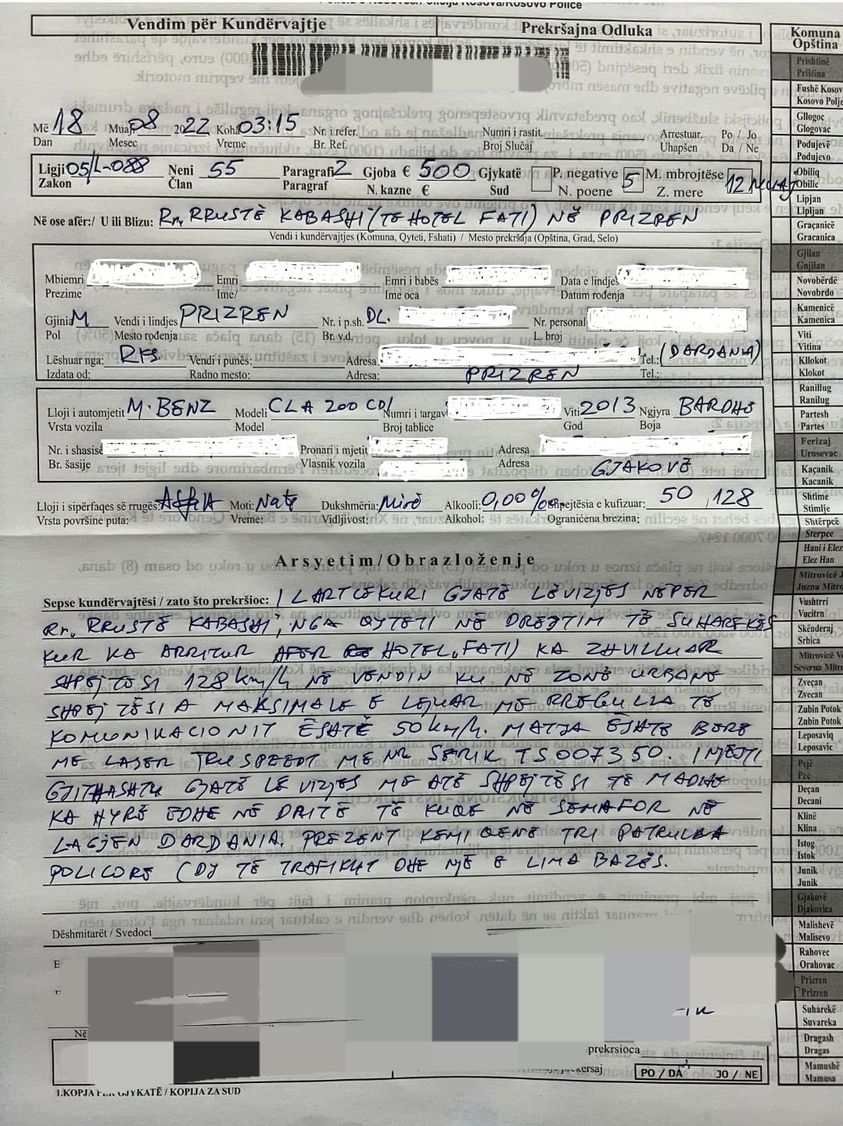 Vendim për Kundërvajtje Prekršajna Odluka
Më 18 Muaj 08 2022 Koha 03:15 Nr. i refer. Numri i rastit. Arrestuar. Po / Jo
Dan Mesec Vreme Br. Ref. Broj Slučaj Uhapšen Da / Ne
Ligji 05/L-088 Neni 55 Paragrafi 2 Gjoba € 500 Gjykatë P. negative 5 M. mbrojtëse 12 MUAJ
Zakon Član Paragraf N. kazne € Sud N. poene Z. mere
Në ose afër:/ U ili Blizu: Rr. RRUSTË KABASHI (TE HOTEL FATI) NË PRIZREN
Vendi i kundërvajtjes (Komuna, Qyteti, Fshati) / Mesto prekršaja (Opština, Grad, Selo)
Mbiemri Emri Emri i babës Data e lindjes
Prezime Ime/ Ime oca Datum rođenja
Gjini M Vendi i lindjes PRIZREN Nr. i p.sh. DL. Nr. personal
Pol Mesto rođenja Br. v.d. L. broj
Lëshuar nga: RKS Vendi i punës: Adresa Tel.: (DARDANIA)
Izdata od: Radno mesto: Adresa: PRIZREN Tel.:
Lloji i automjetit M.BENZ Modeli CLA 200 CDI Numri i targave Viti 2013 Ngjyra BARDHË
Vrsta vozila Model Broj tablice God Boja
Nr. i shasisë Pronari i mjetit Adresa
Br. šasije Vlasnik vozila Adresa GJAKOVË
Lloji i sipërfaqes së rrugës: Asfalt Moti: Natë Dukshmëria: Mirë Alkooli: 0,00% Shpejtësia e kufizuar: 50, 128
Vrsta površine puta: Vreme: Vidljivost: Alkohol: Ograničena brezina:
Arsyetim/Obrazloženje
Sepse kundërvajtësi / zato što prekršioc: I LARTCEKURI GJATË LEVIZJES NEPER
Rr. RRUSTË KABASHI, NGA QYTETI NË DREJTIM TË SUHAREKËS
KUR KA ARRITUR AFER HOTEL FATI) KA ZHVILLUAR
SHPEJTËSI 128 KM/H NË VENDIN KU NË ZONË URBANE
SHPEJTËSIA MAKSIMALE E LEJUAR ME RREGULLA TË
KOMUNIKACIONIT ËSHTË 50 km/h. MATJA ËSHTË BËRË
ME LASER TRUSPEDT ME NR SERIK TS007350. I NJËJTI
GJITHASHTU GJATË LEVIZJES ME ATË SHPEJTËSI TË MADHE
KA HYRË EDHE NË DRITË TË KUQE NË SEMAFOR NË
LAGJEN DARDANIA. PREZENT KEMI QENË TRI PATRULLA
POLICORE (DY TË TRAFIKUT DHE NJË E LIMA BAZËS.
Dëshmitarët / Svedoci
Në
prekrsioca
PO / DA JO / NE
1.KOPJA PËR GJYKATË / KOPIJA ZA SUD
Komuna
Opština
Prishtinë
Priština
Fushë Kosovë
Kosovo Polje
Gllogoc
Glogovac
Podujevë
Podujevo
Obiliq
Obilic
Lipjan
Lipljan
Graçanicë
Gracanica
Gjilan
Gnjilan
Novobërdë
Novobrdo
Kamenicë
Kamenica
Viti
Vitina
Kllokot
Klokot
Ranillug
Ranilug
Partesh
Partes
Ferizaj
Urosevac
Kaçanik
Kacanik
Shtime
Stimlje
Shtërpcë
Sterpce
Hani i Elezit
Elez Han
Mitrovicë J
Juzna Mitrov
Vushtrri
Vucitrn
Skënderaj
Srbica
Mitrovicë V
Severna Mitro
Zveçan
Zvecan
Zubin Potok
Zubin Potok
Leposaviq
Leposavic
Pejë
Pec
Deçan
Decani
Klinë
Klina
Istog
Istok
Junik
Junik
Gjakovë
Djakovica
Malishevë
Malisevo
Rahovec
Orahovac
Prizren
Prizren
Suharekë
Suvareka
Dragash
Dragas
Mamushë
Mamusa